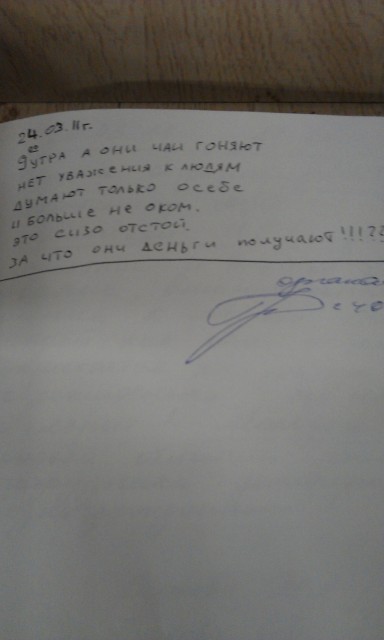 24.03.11г.
9⁰⁰ УТРА А ОНИ ЧАИ ГОНЯЮТ
НЕТ УВАЖЕНИЯ К ЛЮДЯМ
ДУМАЮТ ТОЛЬКО ОСЕБЕ
И БОЛЬШЕ НЕ ОКОМ.
ЭТО СИЗО ОТСТОЙ.
ЗА ЧТО ОНИ ДЕНЬГИ ПОЛУЧАЮТ!!!??